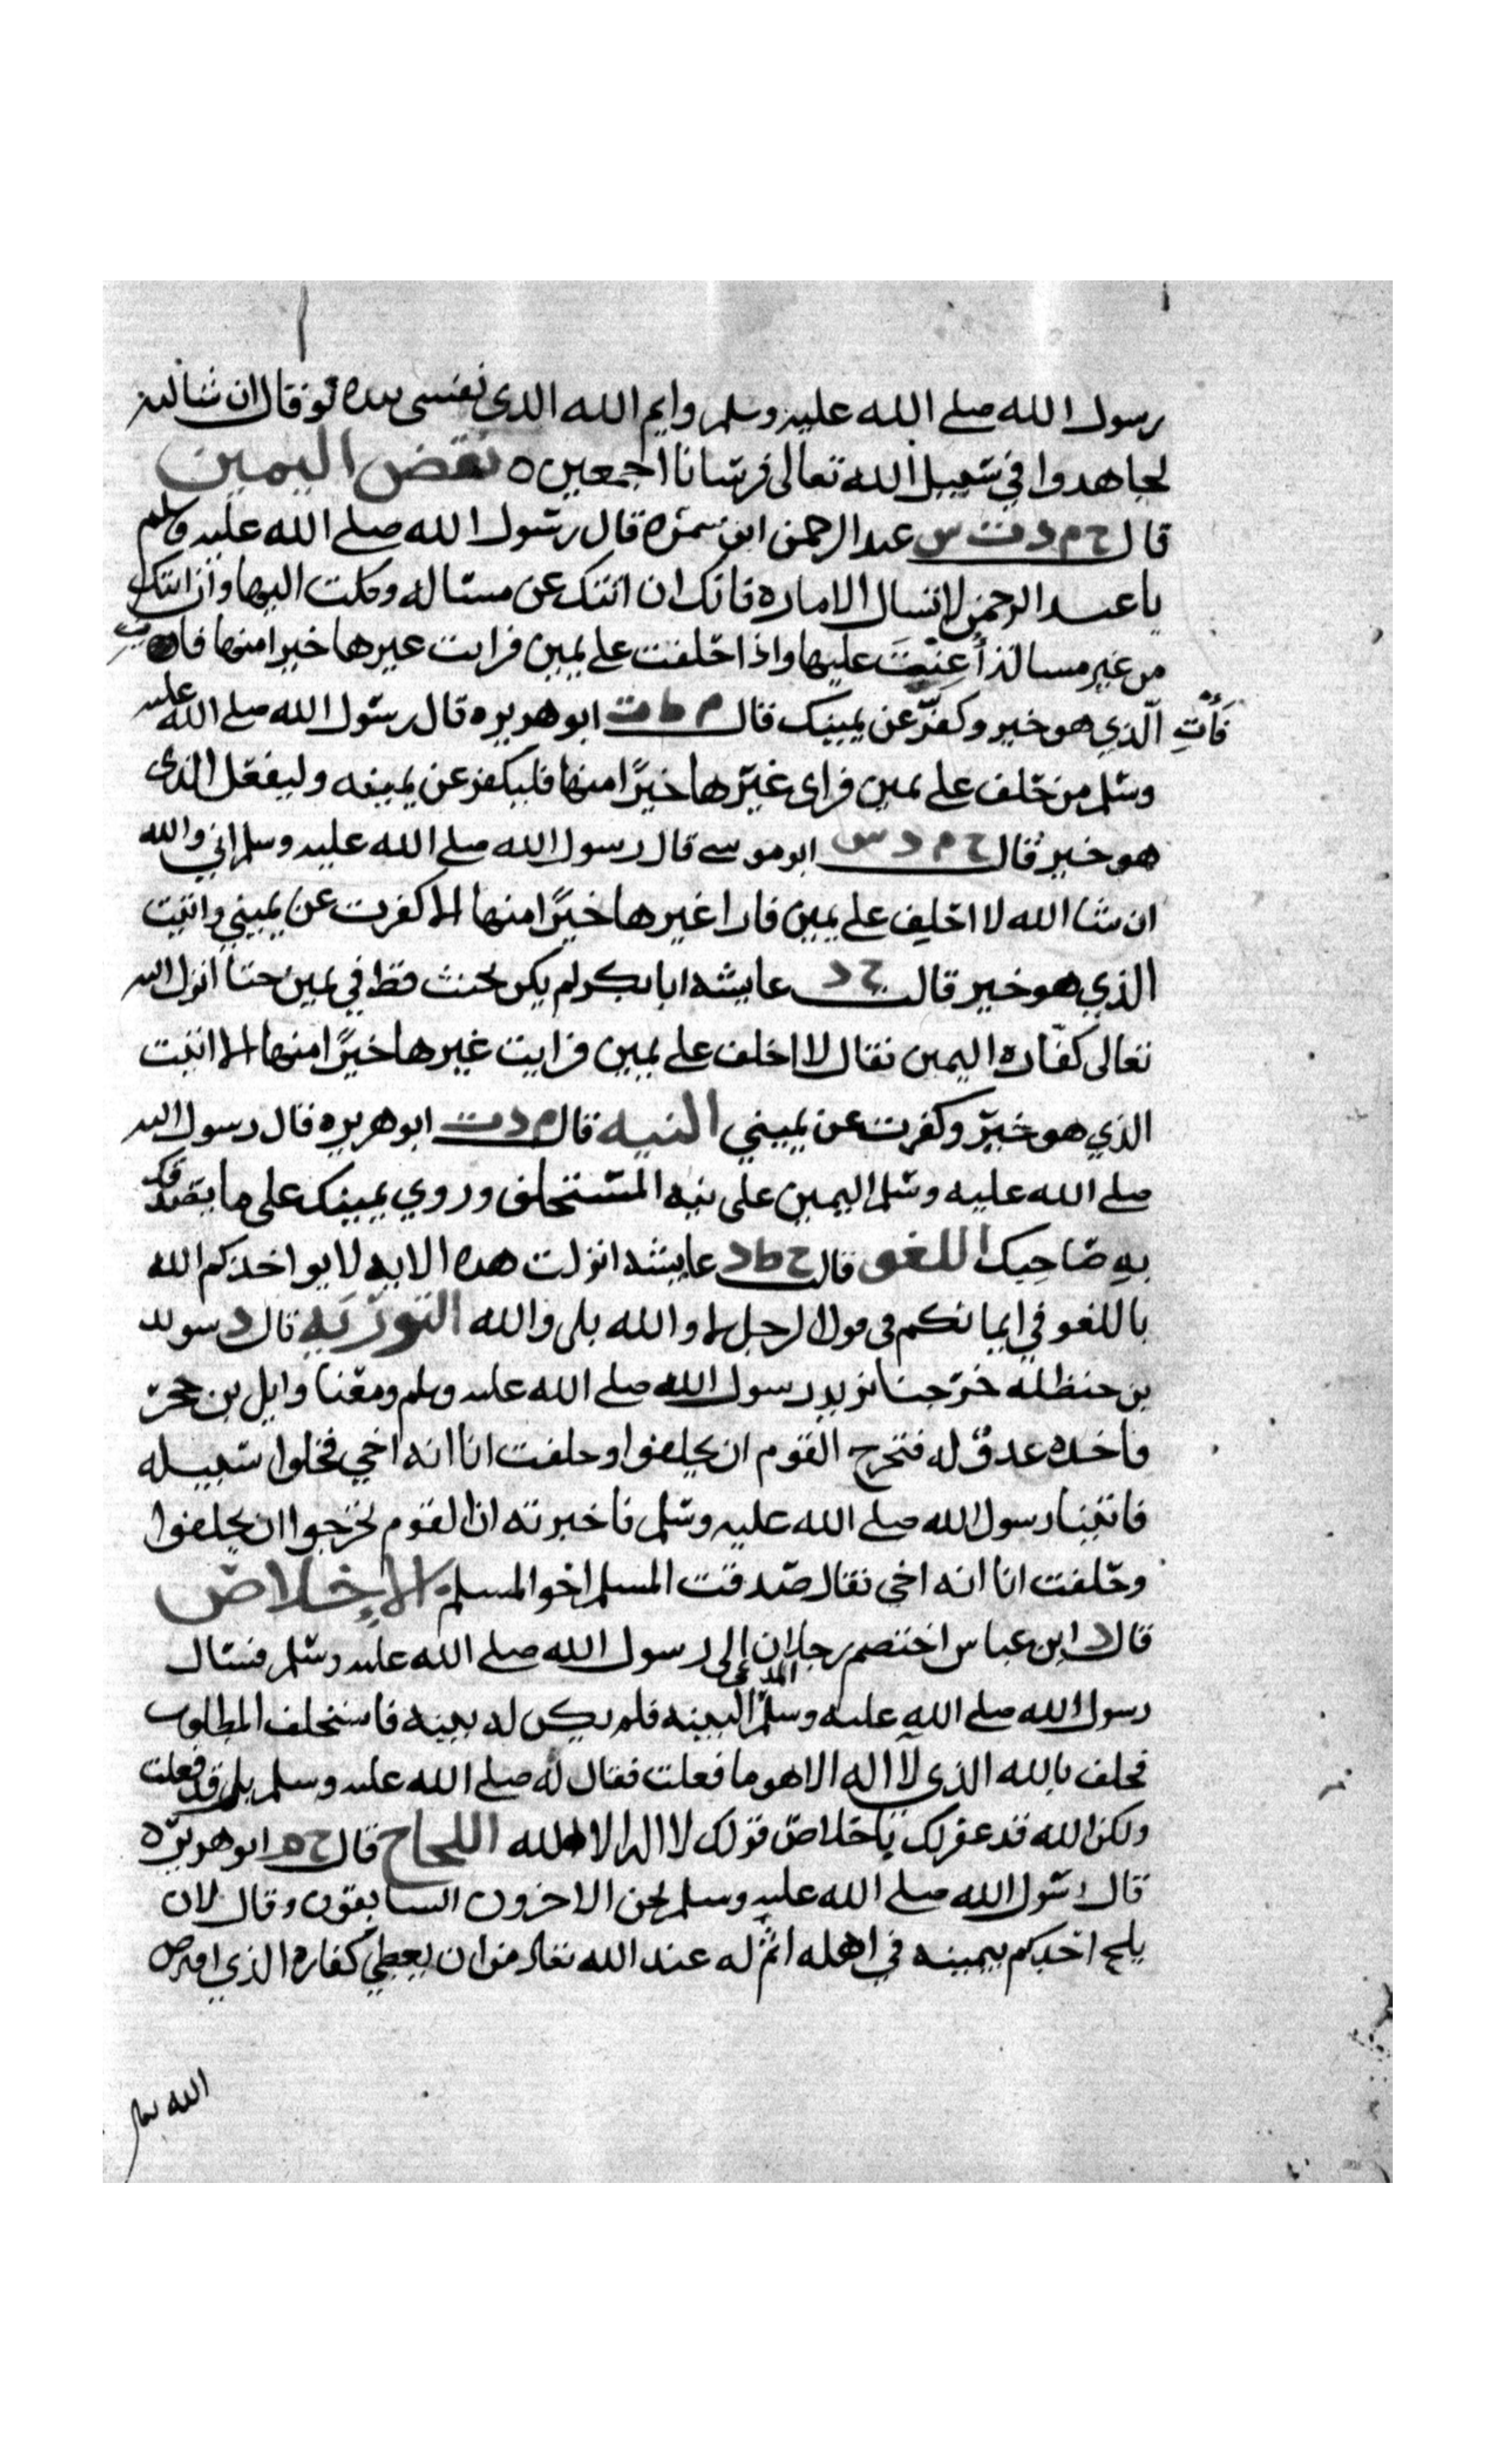 رسول الله صلى الله عليه وسلم وايم الله الذي نفسي بيده لو قال ان شا الله
لجاهدوا في سبيل الله تعالى فرسانا اجمعين ه نقض اليمين
قال خ م د ت س عبد الرحمن ابن سمره قال رسول الله صلى الله عليه وسلم
يا عبد الرحمن لا تسال الاماره فانك ان اتتك عن مساله وكلت اليها وان اتتك
من غير مساله أُعِنْتَ عليها واذا حلفت على يمين فرايت غيرها خيرا منها
فَأْتِ الّذي هو خير وكفّر عن يمينك قال م ط ت ابو هريره قال رسول الله صلى الله عليه
وسلم من حلف على يمين فراى غيرها خيرًا منها فليكفر عن يمينه وليفعل الذي
هو خير قال خ م د س ابو موسى قال رسول الله صلى الله عليه وسلم اني والله
ان شا الله لا احلف على يمين فارا غيرها خيرًا منها الا كفرت عن يميني واتيت
الذي هو خير قالت خ د عايشه ابا بكر لم يكن يحنث قط في يمين حتا انزل الله
تعالى كفّاره اليمين فقال لا احلف على يمين فرايت غيرها خيرًا منها الا اتيت
الذي هو خير وكفرت عن يميني النيه قال م د ت ابو هريره قال رسول الله
صلى الله عليه وسلم اليمين على نيه المستحلف وروي يمينك على ما يصدقك
به صاحبك اللغو قالت خ ط د عايشه انزلت هده الايه لا يواخذكم الله
باللغو في ايمانكم في قول الرجل لا والله بلى والله التوريه قال د سويد
بن حنظله خرجنا نريد رسول الله صلى الله عليه وسلم ومعنا وايل بن حجر
فاخده عدوّ له فتحرج القوم ان يحلفوا وحلفت انا انه اخي فخلوا سبيله
فاتينا رسول الله صلى الله عليه وسلم فاخبرته ان القوم تحرجوا ان يحلفوا
وحلفت انا انه اخي فقال صدقت المسلم اخو المسلم الاخلاص
قال د ابن عباس اختصم رجلان إلى رسول الله صلى الله عليه وسلم فسال
رسول الله صلى الله عليه وسلم المدعى البينه فلم يكن له بينه فاستحلف المطلوب
فحلف بالله الذي لا اله الا هو ما فعلت فقال له صلى الله عليه وسلم بلى قد فعلت
ولكن الله قد غفر لك باخلاص قولك لا اله الا الله اللجاج قال خ م ابو هريره
قال رسول الله صلى الله عليه وسلم نحن الاخرون السابقون وقال لان
يلج احدكم بيمينه في اهله اثم له عند الله تعالى من ان يعطي كفاره الذي افترض
الله تعالى